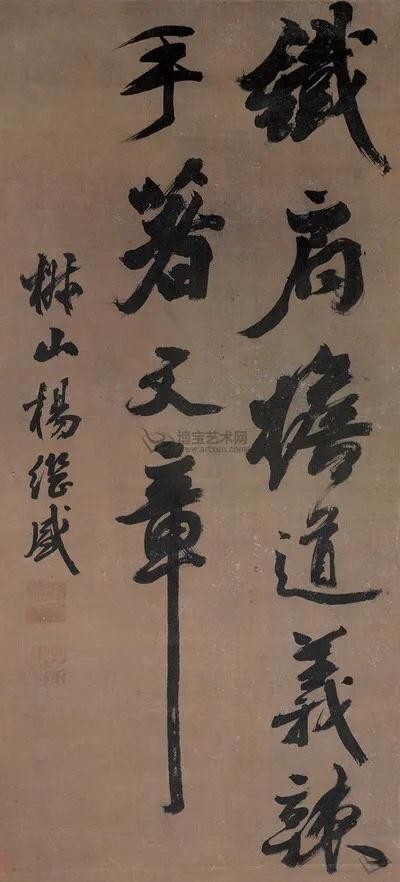 鐵肩擔道義辣
手著文章
椒山楊繼盛
博宝艺术网
www.artxun.com